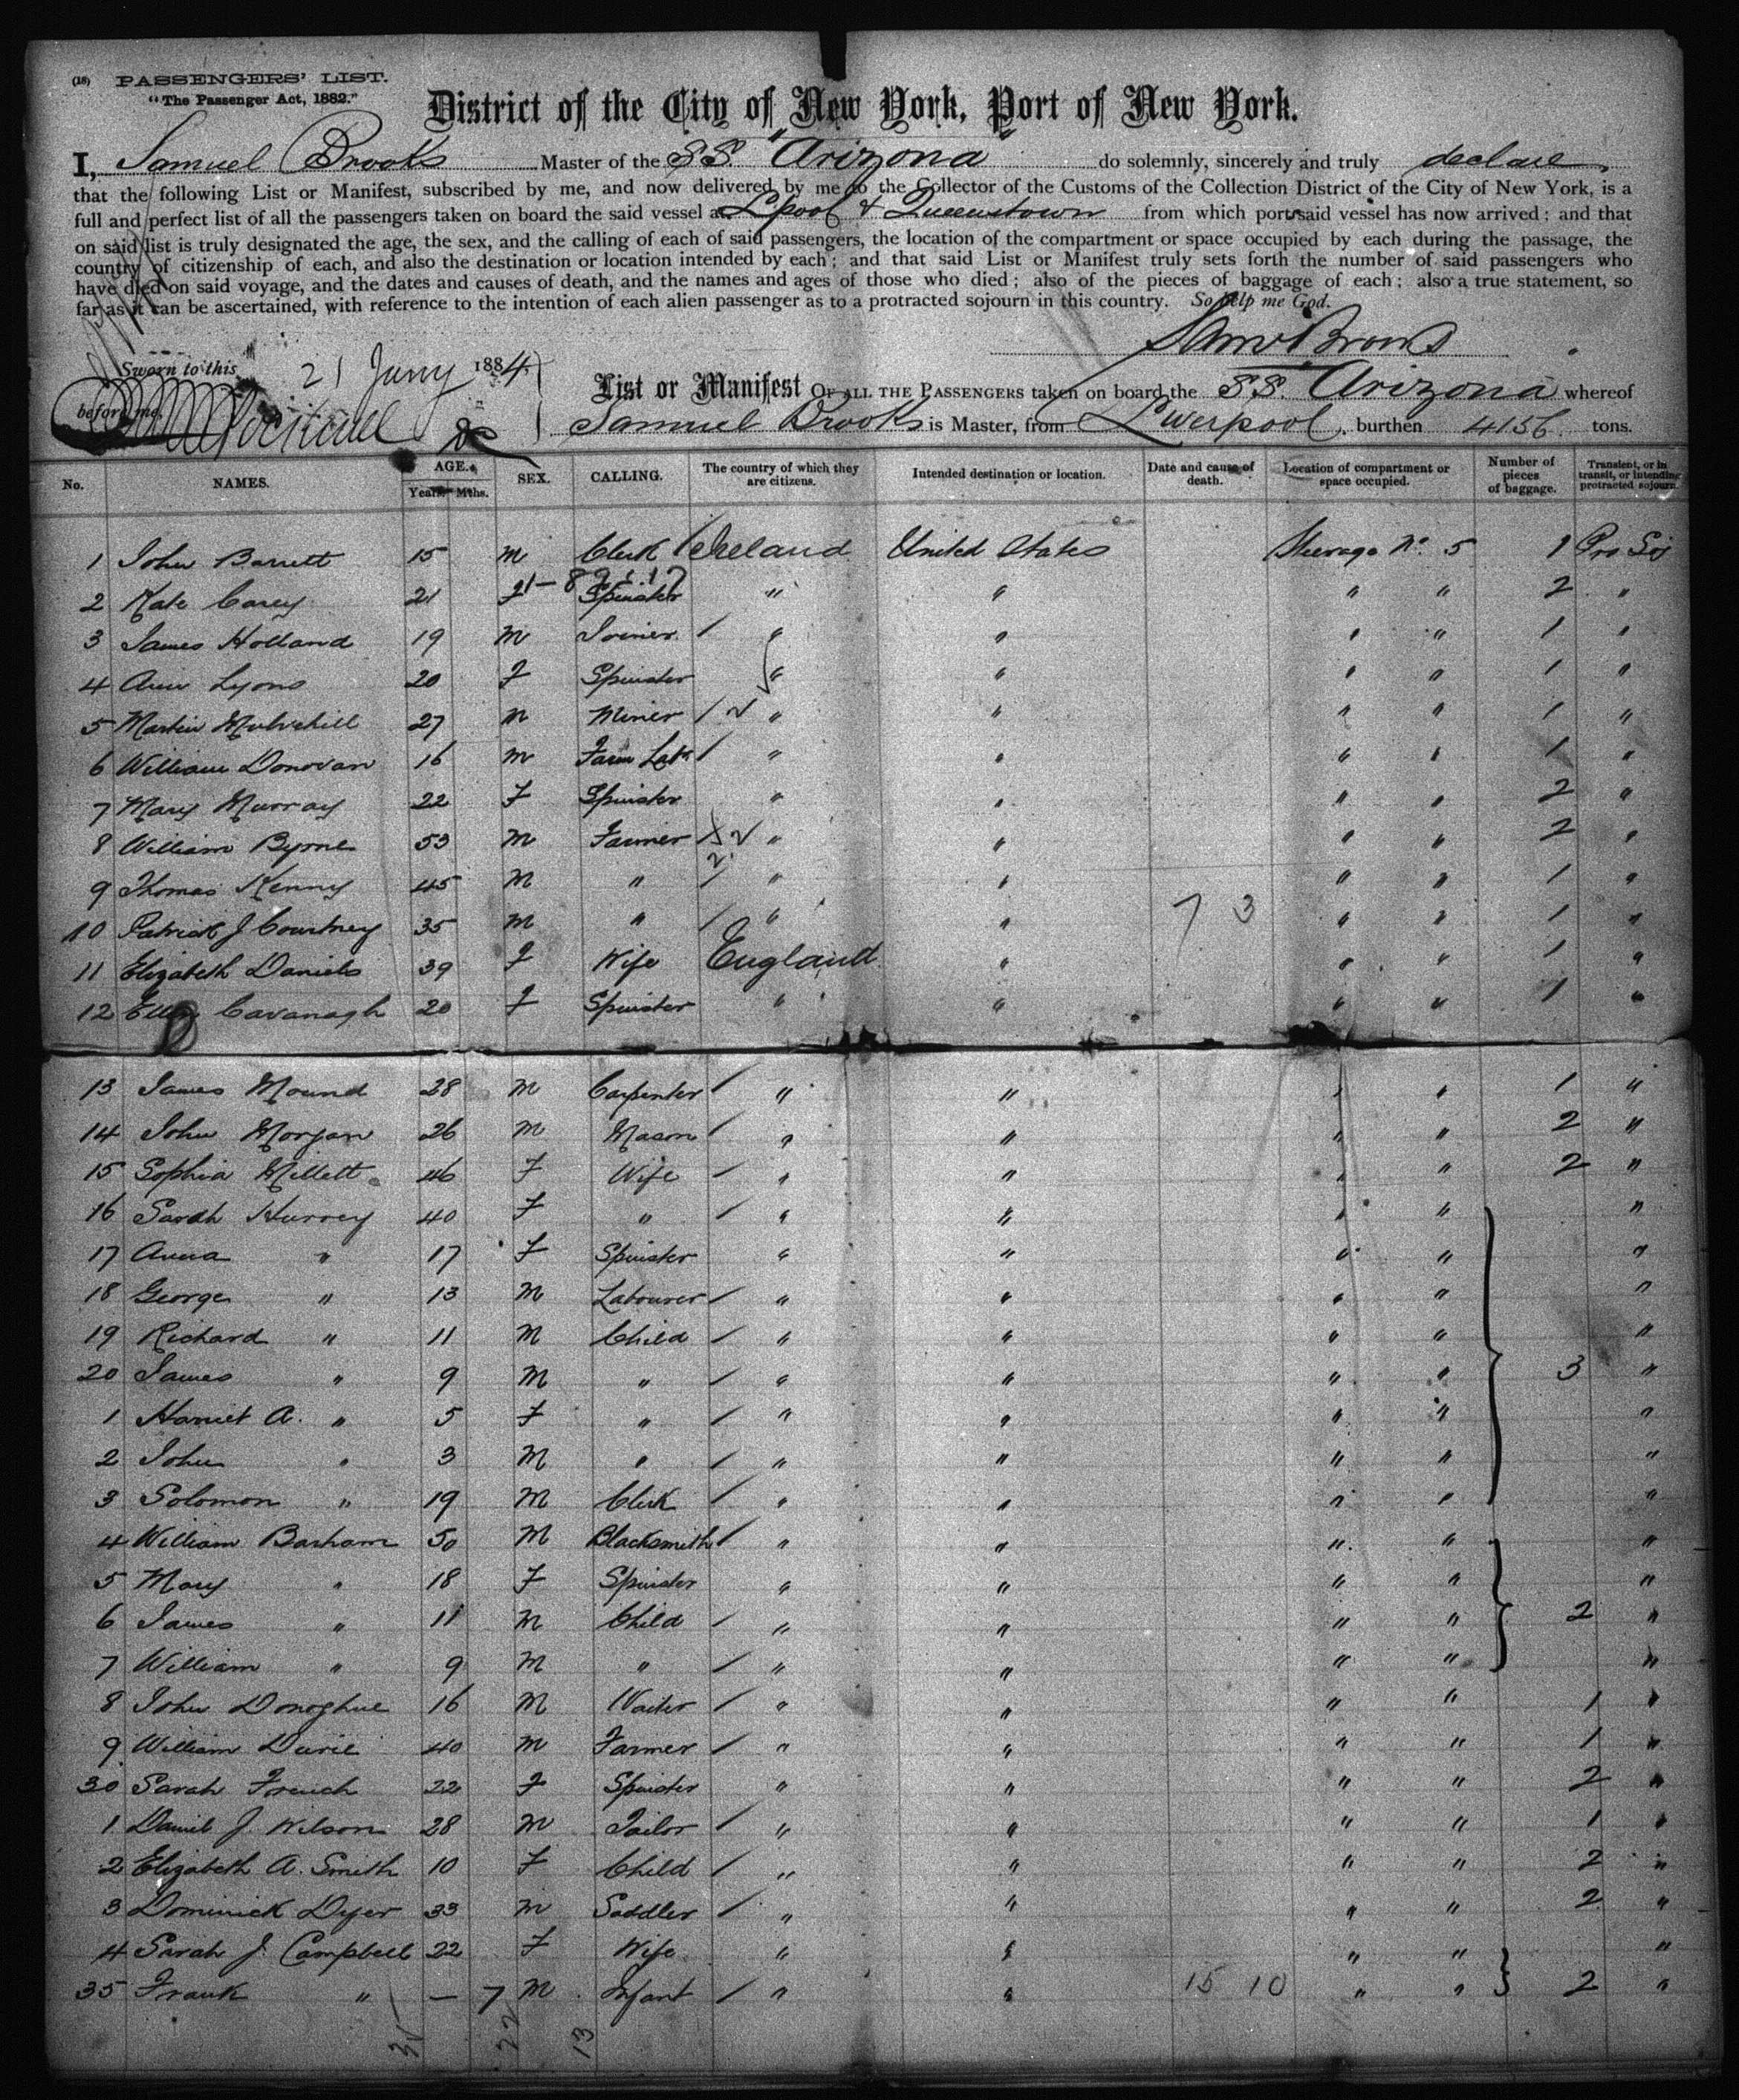 (18) PASSENGERS' LIST.
"The Passenger Act, 1882."
District of the City of New York, Port of New York.
I, Samuel Brooks Master of the S.S. "Arizona" do solemnly, sincerely and truly declare
that the following List or Manifest, subscribed by me, and now delivered by me to the Collector of the Customs of the Collection District of the City of New York, is a
full and perfect list of all the passengers taken on board the said vessel at L'pool & Queenstown from which port said vessel has now arrived; and that
on said list is truly designated the age, the sex, and the calling of each of said passengers, the location of the compartment or space occupied by each during the passage, the
country of citizenship of each, and also the destination or location intended by each; and that said List or Manifest truly sets forth the number of said passengers who
have died on said voyage, and the dates and causes of death, and the names and ages of those who died; also of the pieces of baggage of each; also a true statement, so
far as it can be ascertained, with reference to the intention of each alien passenger as to a protracted sojourn in this country. So help me God.
Saml Brooks
Sworn to this 21 Jany 1884
before me,
List or Manifest OF ALL THE PASSENGERS taken on board the S.S. Arizona whereof
Samuel Brooks is Master, from Liverpool, burthen 4156 tons.
No. NAMES. AGE. Years. Mths. SEX. CALLING. The country of which they are citizens. Intended destination or location. Date and cause of death. Location of compartment or space occupied. Number of pieces of baggage. Transient, or in transit, or intending protracted sojourn.
1 John Barrett 15 M Clerk Ireland United States Steerage No. 5 1 Pro Soj
2 Kate Carey 21 F Spinster " " " " 2 "
3 James Holland 19 M Joiner " " " " 1 "
4 Ann Lyons 20 F Spinster " " " " 1 "
5 Martin Mulvehill 27 M Miner " " " " 1 "
6 William Donovan 16 M Farm Labr " " " " 1 "
7 Mary Murray 22 F Spinster " " " " 2 "
8 William Byrne 53 M Farmer " " " " 2 "
9 Thomas Kenny 45 M " " " " " 1 "
10 Patrick J Courtney 35 M " " " 7 3 " " 1 "
11 Elizabeth Daniels 39 F Wife England " " " 1 "
12 Ellen Cavanagh 20 F Spinster " " " " 1 "
13 James Mound 28 M Carpenter " " " " 1 "
14 John Morgan 26 M Mason " " " " 2 "
15 Sophia Millett 46 F Wife " " " " 2 "
16 Sarah Hurrey 40 F " " " " " "
17 Anna " 17 F Spinster " " " " "
18 George " 13 M Labourer " " " " "
19 Richard " 11 M Child " " " " "
20 James " 9 M " " " " " 3 "
1 Harriet A. " 5 F " " " " " "
2 John " 3 M " " " " " "
3 Solomon " 19 M Clerk " " " " "
4 William Barham 50 M Blacksmith " " " " "
5 Mary " 18 F Spinster " " " " "
6 James " 11 M Child " " " " 2 "
7 William " 9 M " " " " " "
8 John Donoghue 16 M Waiter " " " " 1 "
9 William Durie 40 M Farmer " " " " 1 "
30 Sarah French 22 F Spinster " " " " 2 "
1 Daniel J. Wilson 28 M Tailor " " " " 1 "
2 Elizabeth A. Smith 10 F Child " " " " 2 "
3 Dominick Dyer 33 M Saddler " " " " 2 "
4 Sarah J. Campbell 22 F Wife " " " " "
35 Frank " — 7 M Infant " " 15 10 " " 2 "
35 22 13